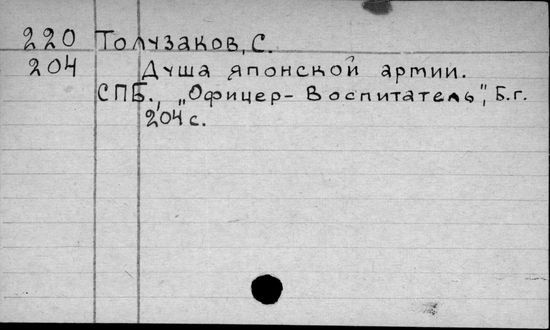 220 Толузаков, С.
204 Душа японской армии.
СПБ., „Офицер-Воспитатель", Б.г.
204 с.